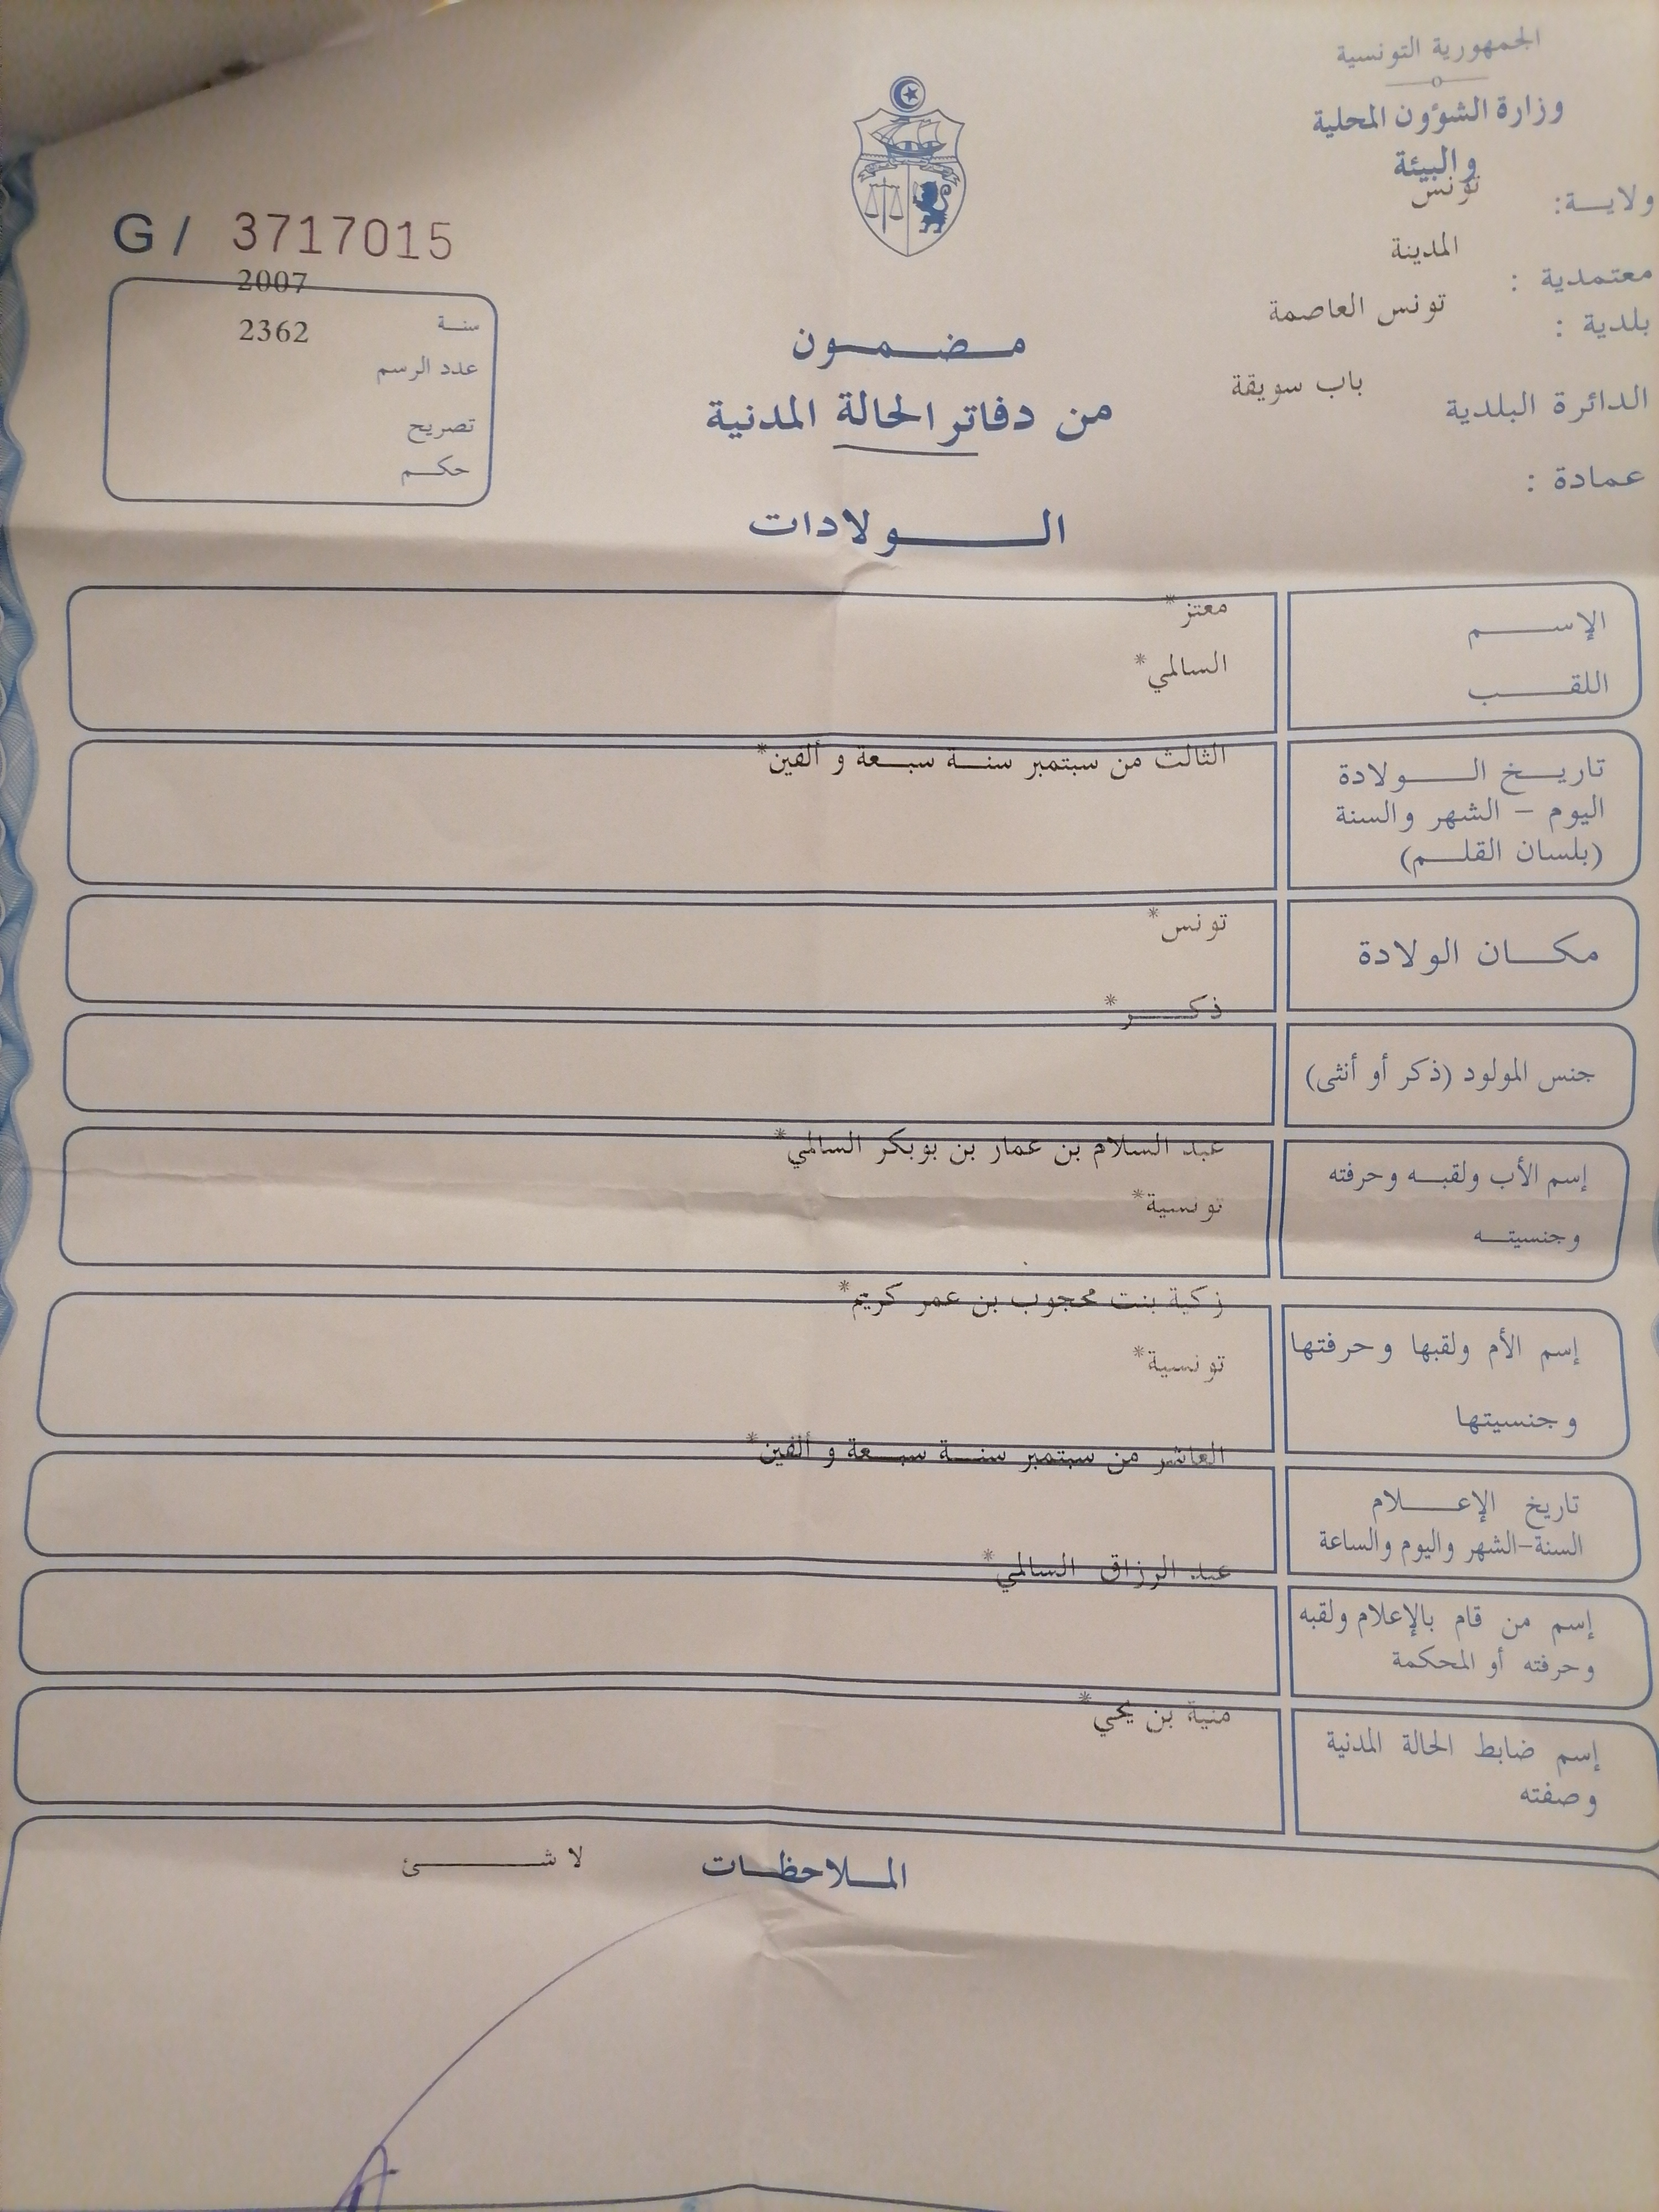 الجمهورية التونسية
وزارة الشؤون المحلية
والبيئة
ولايـــة: تونس
معتمدية : المدينة
بلدية : تونس العاصمة
الدائرة البلدية باب سويقة
عمادة :
G/ 3717015
سنـة 2007
عدد الرسم 2362
تصريح
حكـم
مـضـمـون
من دفاتر الحالة المدنية
الـولادات
الإســم معتز*
اللقــب السالمي*
تاريـخ الــولادة الثالث من سبتمبر سنـة سبـعة و ألفين*
اليوم – الشهر والسنة
(بلسان القلـم)
مكـان الولادة تونس*
جنس المولود (ذكر أو أنثى) ذكـر*
إسم الأب ولقبـه وحرفته عبد السلام بن عمار بن بوبكر السالمي*
وجنسيتـه تونسية*
إسم الأم ولقبها وحرفتها زكية بنت محجوب بن عمر كريم*
وجنسيتها تونسية*
تاريخ الإعــلام العاشر من سبتمبر سنـة سبـعة و ألفين*
السنة-الشهر واليوم والساعة
إسم من قام بالإعلام ولقبه عبد الرزاق السالمي*
وحرفته أو المحكمة
إسم ضابط الحالة المدنية منية بن يحي*
وصفته
المـلاحظـات لا شـئ